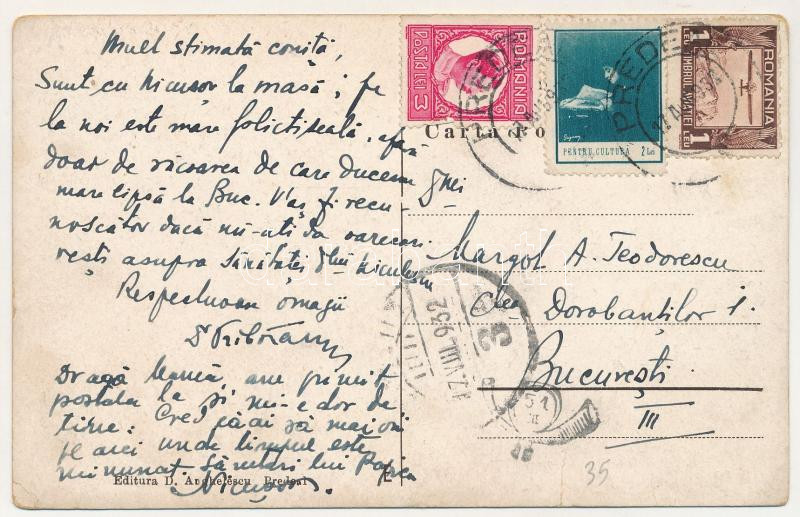 Mult stimată coniță,
Sunt cu Nicușor la masă; pe
la noi este mare
doar de răcoarea de care ducem
mare lipsă la Buc. V'aș fi recu-
noscător dacă mi-ați da oarecari
vești asupra sănătății Dlui Niculescu
Respectuoase omagii
Dragă Mamă, am primit
postala ta și mi-e dor de
tine. Cred că ai să mai vii
pe aici unde timpul este
minunat. Sărutări lui Papa
Nicușor
Editura D. Anghelescu Predeal
ROMANIA
POSTA LEI 3
PENTRU CULTURA 2 Lei
ROMANIA
1 LEI TIMBRUL AVIATIEI 1 LEI
PREDEAL
PREDEAL
Carta Po
Dnei
Margot A. Teodorescu
Calea Dorobanților 1.
București
III
12 VIII. 932
3
51
35